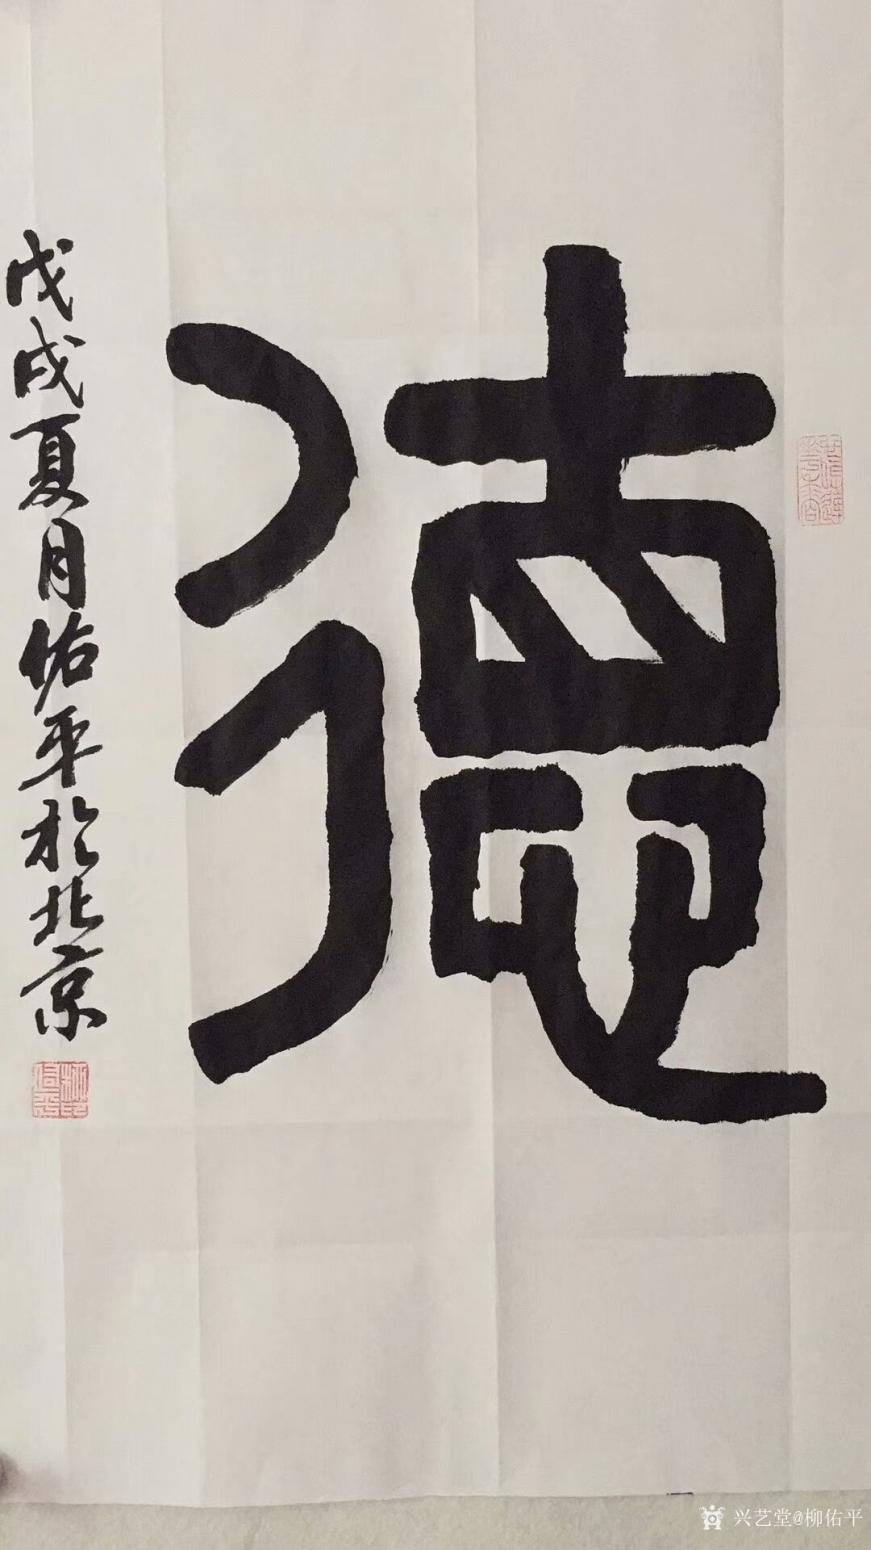 德
戊戌夏月佑平於北京
兴艺堂@柳佑平